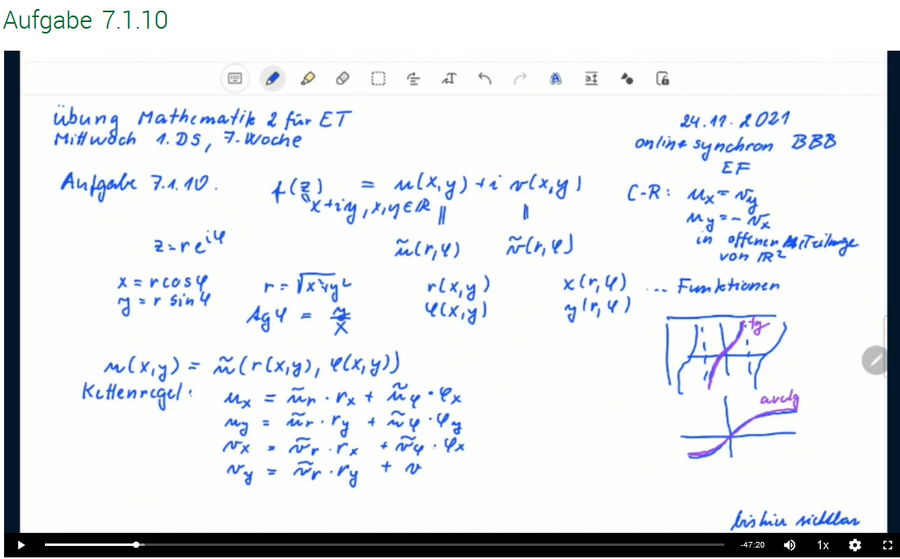 Aufgabe 7.1.10
Übung Mathematik 2 für ET
Mittwoch 1. DS, 7. Woche
24.11.2021
online synchron BBB
EF
Aufgabe 7.1.10.
f(z) = u(x,y) + i v(x,y)
x+iy, x,y∈ℝ || ||
C-R: u_x = v_y
u_y = - v_x
in offener Teilmenge
von ℝ²
z = r e^{iφ}
ũ(r,φ) ṽ(r,φ)
x = r cos φ
y = r sin φ
r = √(x²+y²)
φ = y/x
r(x,y)
φ(x,y)
x(r,φ)
y(r,φ)
... Funktionen
tg
arctg
u(x,y) = ũ(r(x,y), φ(x,y))
Kettenregel:
u_x = ũ_r · r_x + ũ_φ · φ_x
u_y = ũ_r · r_y + ũ_φ · φ_y
v_x = ṽ_r · r_x + ṽ_φ · φ_x
v_y = ṽ_r · r_y + v
bis hier sichtbar
-47:20 1x